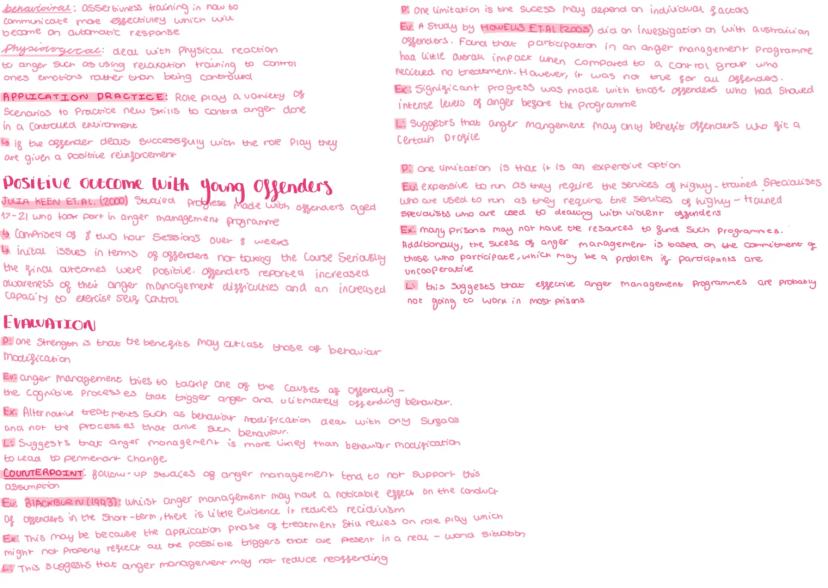 behavioural: assertiveness training in how to
communicate more effectively which will
become an automatic response
Physiological: deal with physical reaction
to anger such as using relaxation training to control
ones emotions rather than being controlled
APPLICATION PRACTICE: Role play a variety of
Scenarios to Practice new skills to control anger done
in a controlled environment
↳ if the offender deals successfully with the role play they
are given a positive reinforcement
Positive outcome with young offenders
JULIA KEEN ET.AL. (2000) Studied progress made with offenders aged
17-21 who took part in anger management programme
↳ Comprised of 8 two hour sessions over 8 weeks
↳ initial issues in terms of offenders not taking the course seriously
the final outcomes were positive. offenders reported increased
awareness of their anger management difficulties and an increased
capacity to exercise self control
EVALUATION
P: one strength is that the benefits may outlast those of behaviour
modification
Ev: anger management tries to tackle one of the causes of offending -
the cognitive processes that trigger anger and, ulitmately offending behaviour.
Ex: Alternative treatments such as behaviour modification deal with only surface
and not the processes that drive such behaviour.
L: Suggests that anger management is more likley than behaviour modification
to lead to permenant change.
COUNTERPOINT: follow-up studies of anger management tend to not support this
assumption
Ev: BLACKBURN (1993): whilst anger management may have a noticable effect on the conduct
of offenders in the short-term, there is little evidence it reduces recidivism
Ex: This may be because the application phase of treatment still relies on role play which
might not properly reflect all the possible triggers that are present in a real-world situation
L: This suggests that anger management may not reduce reoffending
P: one limitation is the sucess may depend on individual factors
Ev: A study by HOWELLS ET.AL (2005) did an investigation on with australian
offenders. Found that participation in an anger management programme
had little overall impact when compared to a control group who
recieved no treatment. However, it was not true for all offenders.
Ex: Significant progress was made with those offenders who had showed
intense levels of anger before the programme
L: Suggests that anger mangement may only benefit offenders who fit a
certain profile
P: one limitation is that it is an expensive option
Ev: expensive to run as they require the services of highly-trained specialises
who are used to run as they require the services of highly-trained
specialists who are used to dealing with violent offenders
Ex: many prisons may not have the resources to fund such programmes.
Additionally, the sucess of anger management is based on the commitment of
those who participate, which may be a problem if participants are
uncooperative
L: this suggests that effective anger management programmes are probably
not going to work in most prisons